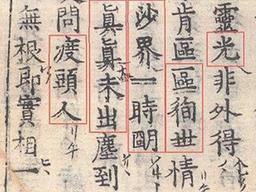 靈光非外得
肯區區徇世情
沙界一時明
眞眞未出塵到
問渡頭人
無根即實相一